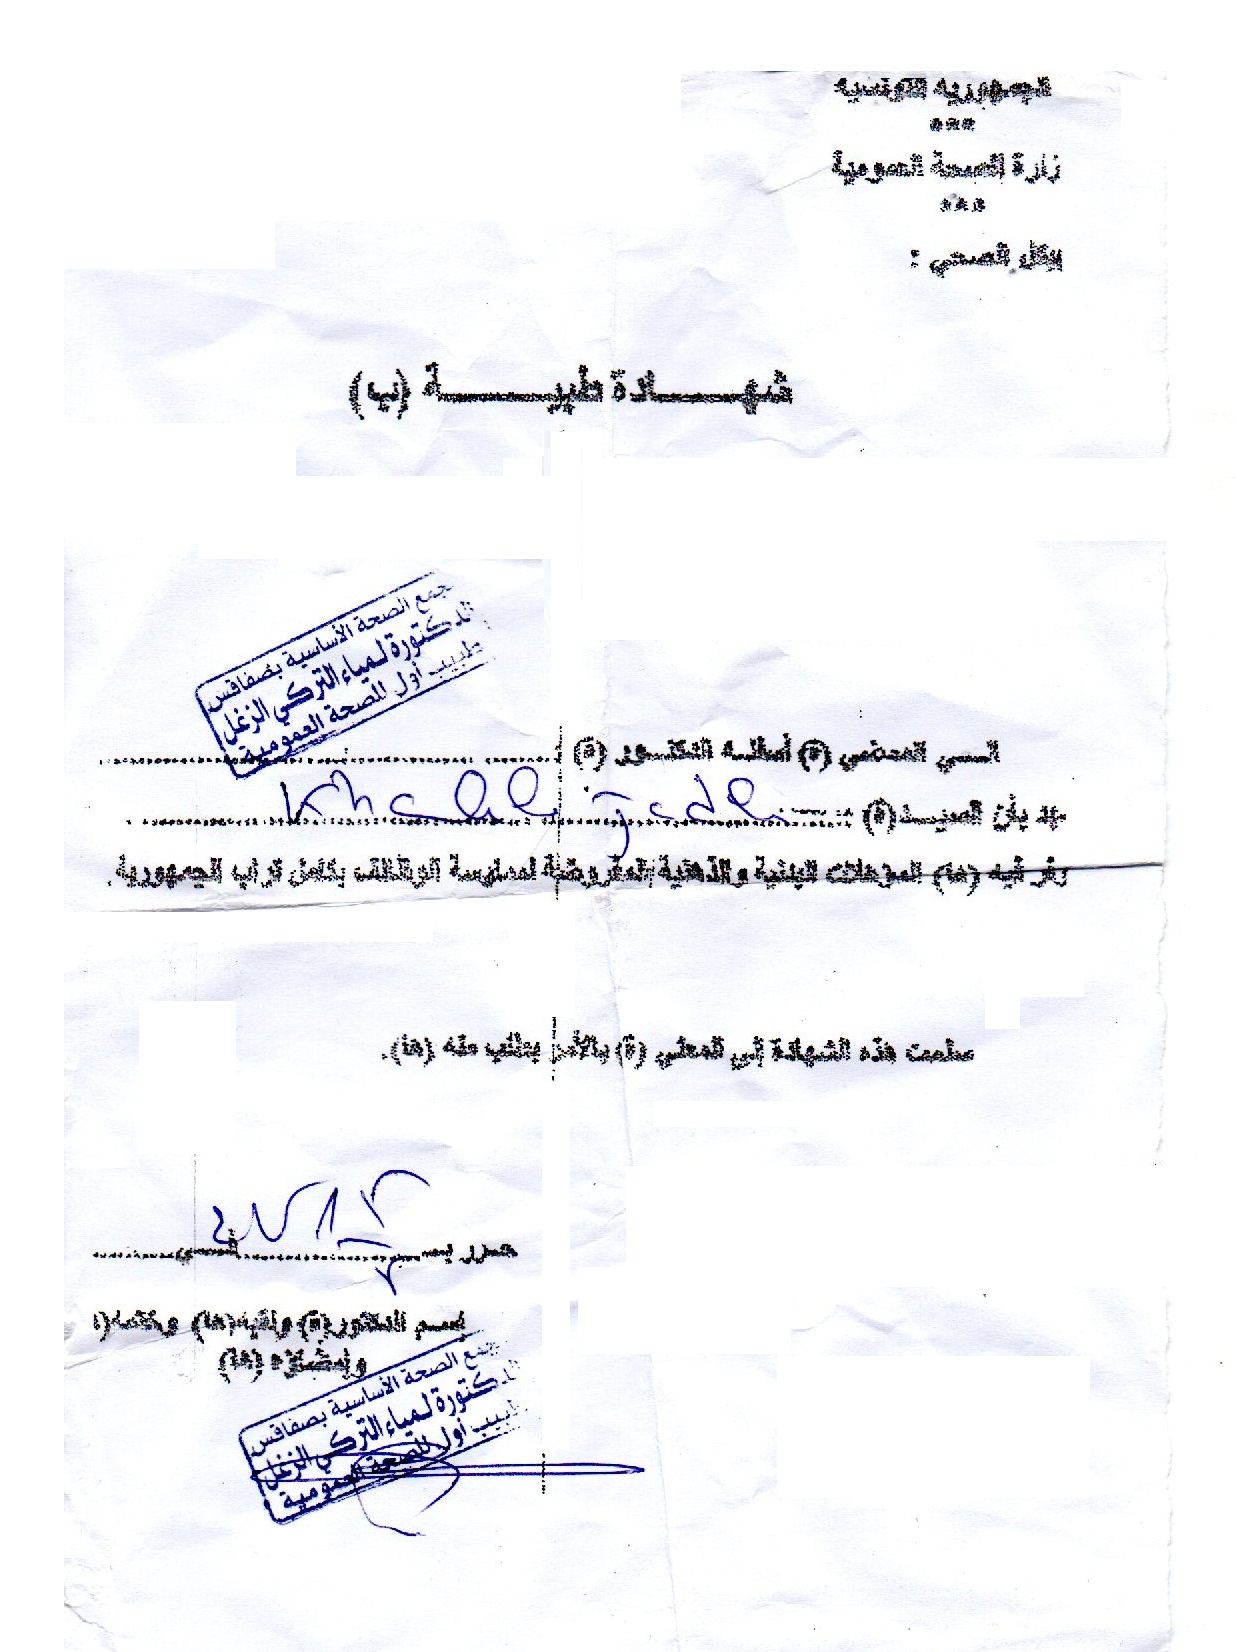 الجمهورية التونسية
***
زارة الصحة العمومية
***
يكل الصحي :
شهـــادة طبيـــــة (ب)
جمع الصحة الأساسية بصفاقس
الدكتورة لمياء التركي الزغل
طبيب أول للصحة العمومية
المضي (ة) أسفله الدكتور (ة)
هد بأن السيد(ة) Khalil Jadli
فر فيه (ها) المؤهلات البدنية والذهنية المفروضة لممارسة الوظائف بكامل تراب الجمهورية.
سلمت هذه الشهادة إلى المعني (ة) بالأمر بطلب منه (ها).
حرر بـ في
إسم الدكتور(ة) ولقبه(ها) وختمه(ا
وإمضاؤه (ها)
جمع الصحة الأساسية بصفاقس
الدكتورة لمياء التركي الزغل
طبيب أول للصحة العمومية